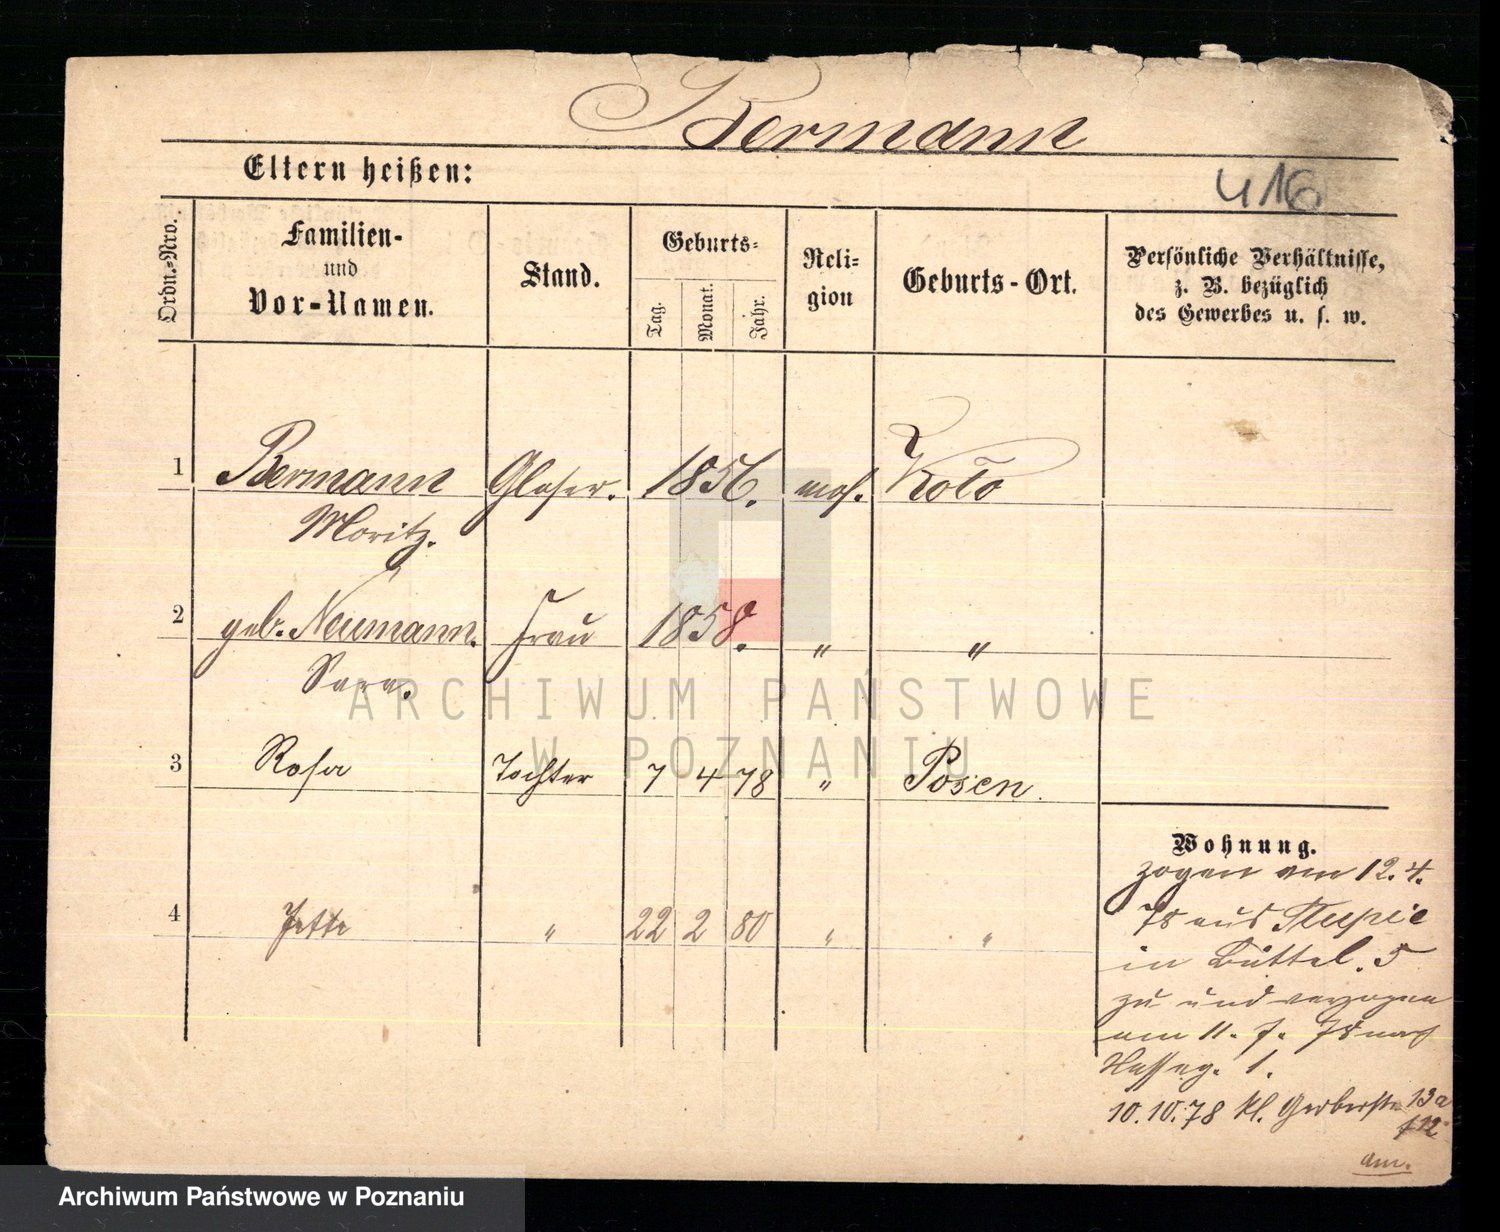 Bermann
Eltern heißen:
416
Ordn.-Nro.
Familien-
und
Vor-Namen.
Stand.
Geburts-
Tag.
Monat.
Jahr.
Reli-
gion
Geburts-Ort.
Persönliche Verhältnisse,
z. B. bezüglich
des Gewerbes u. s. w.
1 Bermann Glaser. 1856. mos. Koło
Moritz.
2 geb. Neumann. Frau 1858. " "
Sara.
ARCHIWUM PAŃSTWOWE
W POZNANIU
3 Rosa Tochter 7 4 78 " Posen.
4 Jette " 22 2 80 " "
Wohnung.
zogen am 12. 4.
78 aus
in Büttel. 5
zu und verzogen
am 11. 7. 78 nach
1.
10.10.78 kl. Gerberstr 13a
am.
Archiwum Państwowe w Poznaniu